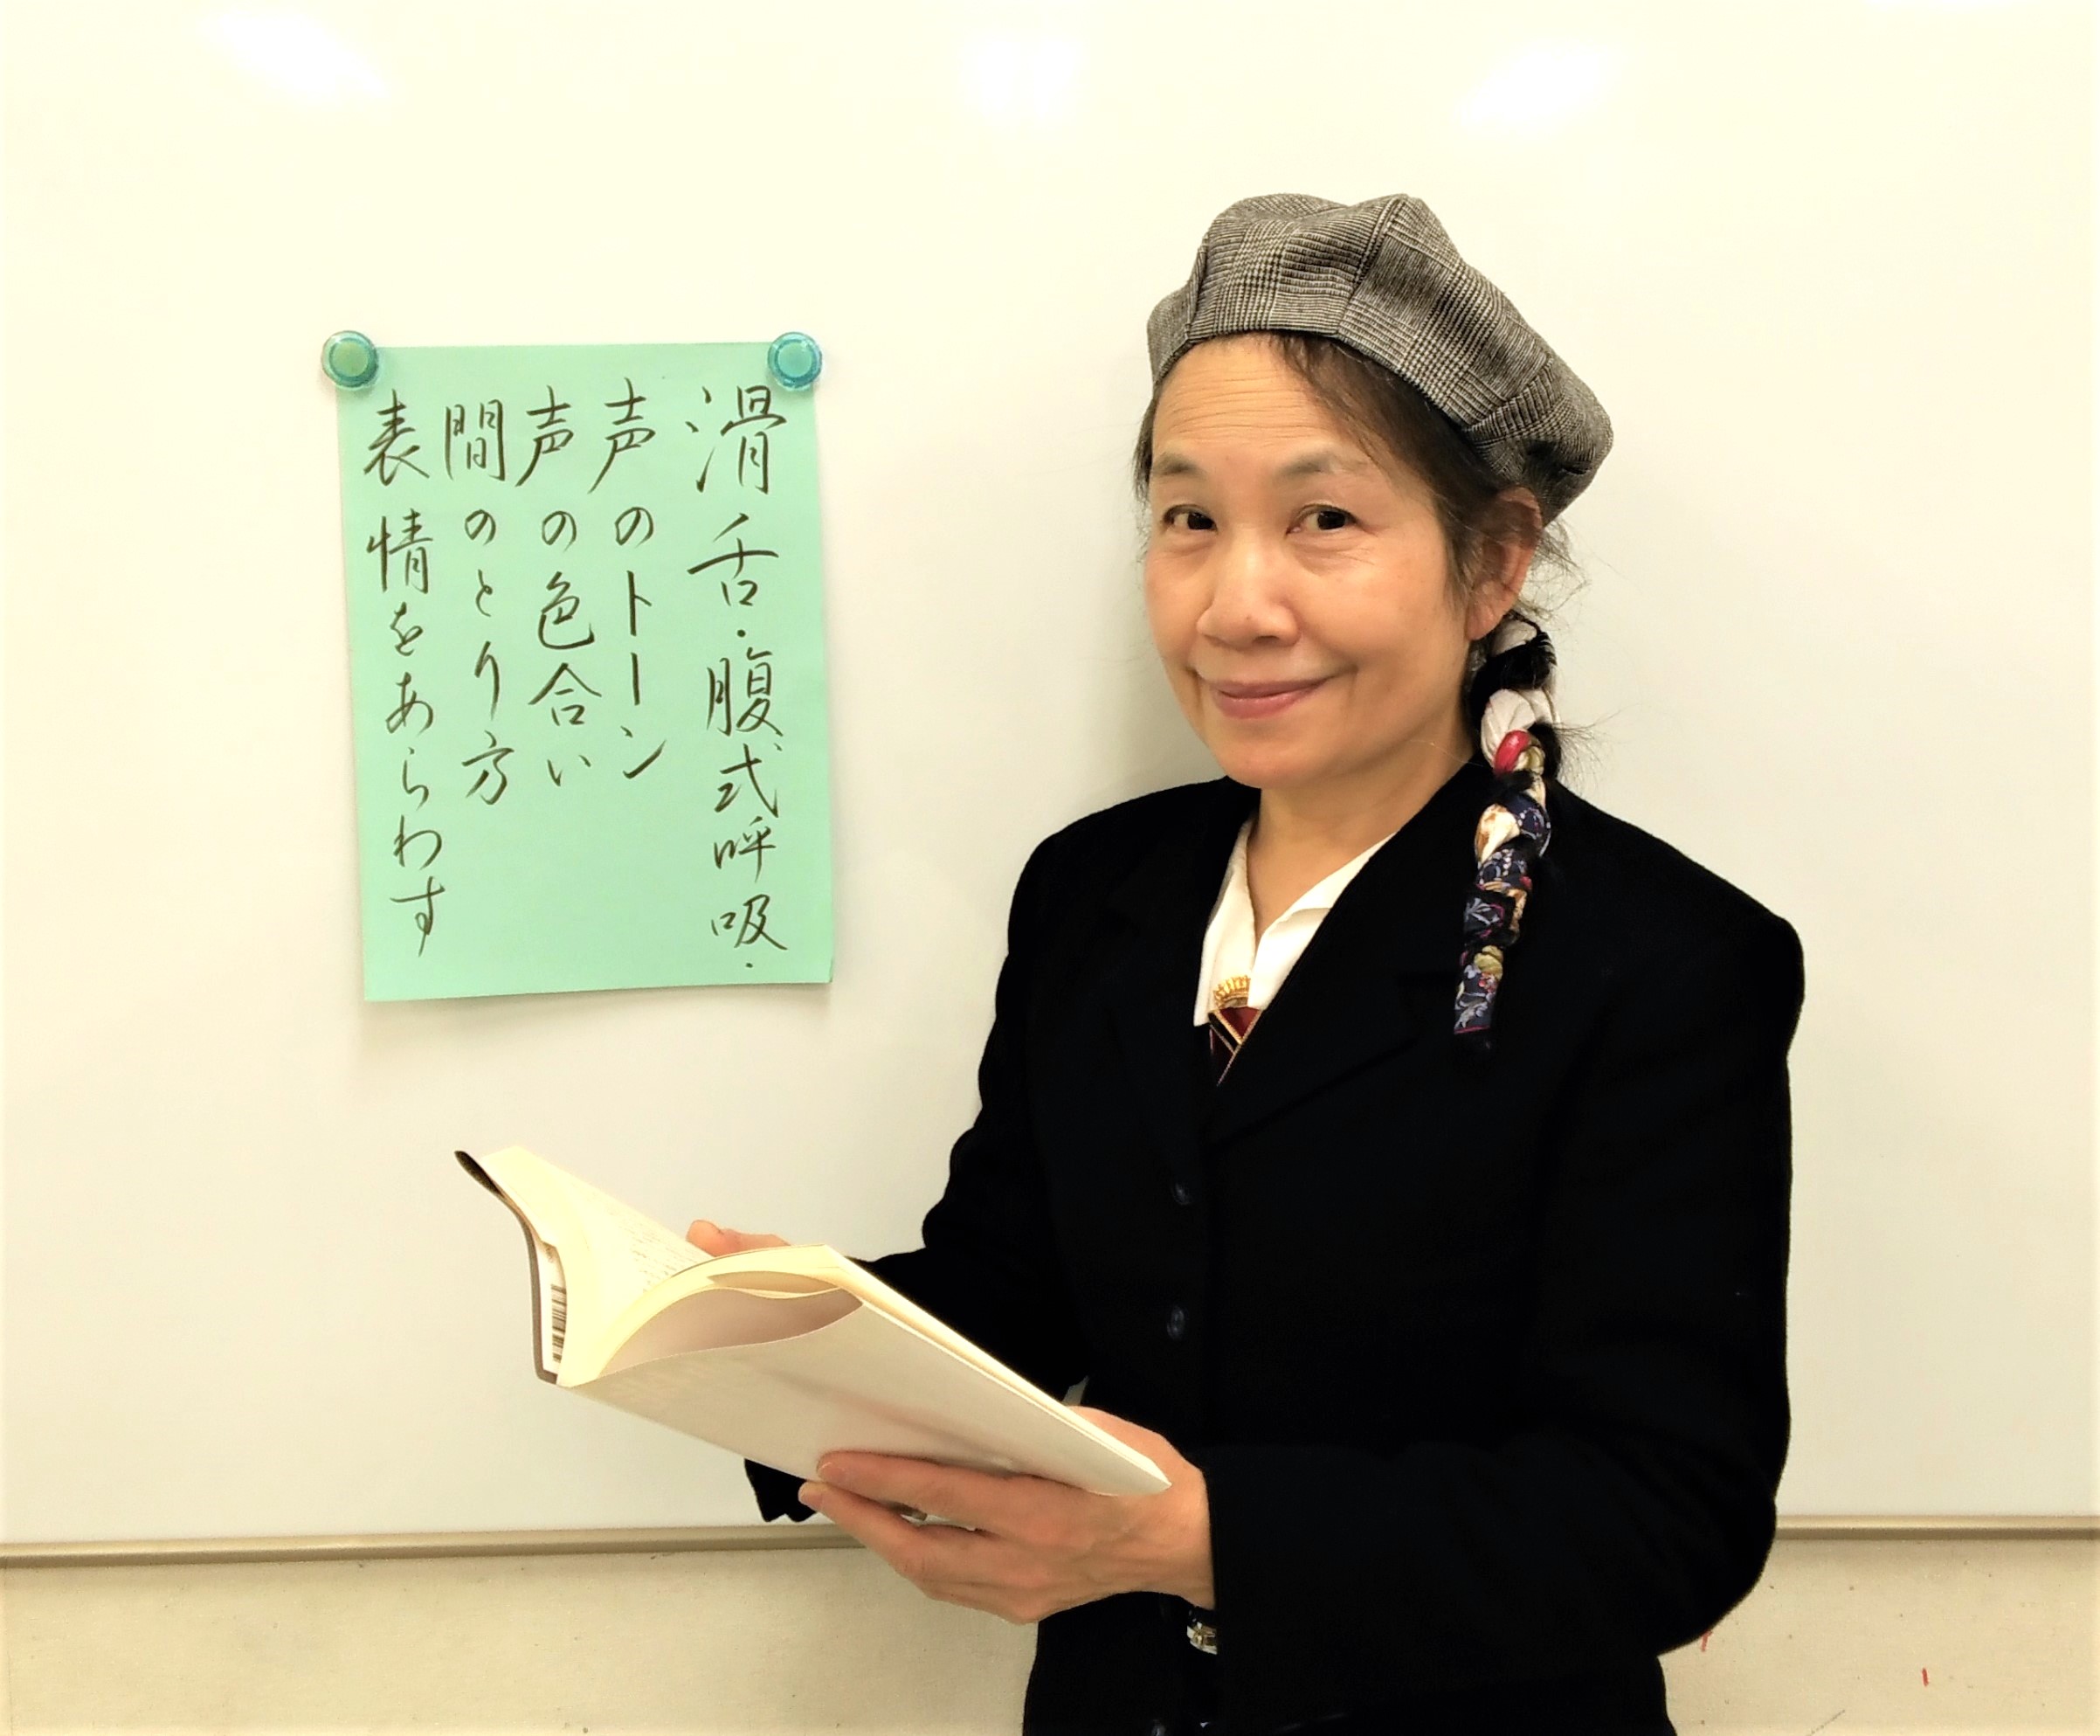 滑舌・腹式呼吸・
声のトーン
声の色合い
間のとり方
表情をあらわす